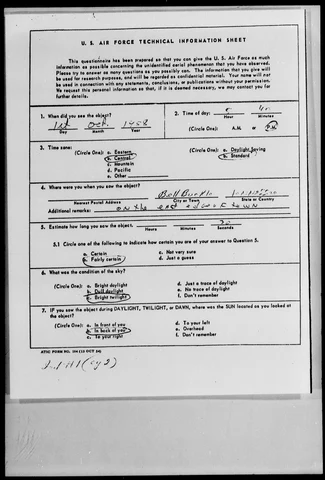 U. S. AIR FORCE TECHNICAL INFORMATION SHEET
This questionnaire has been prepared so that you can give the U. S. Air Force as much
information as possible concerning the unidentified aerial phenomenon that you have observed.
Please try to answer as many questions as you possibly can. The information that you give will
be used for research purposes, and will be regarded as confidential material. Your name will not
be used in connection with any statements, conclusions, or publications without your permission.
We request this personal information so that, if it is deemed necessary, we may contact you for
further details.
1. When did you see the object?
1st Oct. 1958
Day Month Year
2. Time of day:
Hour Minutes
(Circle One): A.M. or P.M.
3. Time zone:
(Circle One): a. Eastern
b. Central
c. Mountain
d. Pacific
e. Other
(Circle One): a. Daylight Saving
b. Standard
4. Where were you when you saw the object?
Bell Buckle
Nearest Postal Address City or Town State or Country
Additional remarks: ON the east edge of town
5. Estimate how long you saw the object.
Hours Minutes Seconds
5.1 Circle one of the following to indicate how certain you are of your answer to Question 5.
a. Certain
b. Fairly certain
c. Not very sure
d. Just a guess
6. What was the condition of the sky?
(Circle One): a. Bright daylight
b. Dull daylight
c. Bright twilight
d. Just a trace of daylight
e. No trace of daylight
f. Don't remember
7. IF you saw the object during DAYLIGHT, TWILIGHT, or DAWN, where was the SUN located as you looked at
the object?
(Circle One): a. In front of you
b. In back of you
c. To your right
d. To your left
e. Overhead
f. Don't remember
ATIC FORM NO. 164 (13 OCT 54)